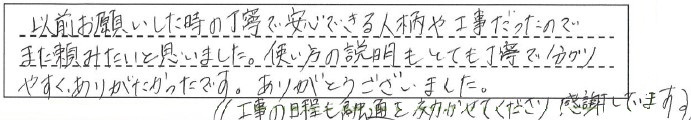 以前お願いした時の丁寧で安心できる人柄や工事だったので
また頼みたいと思いました。使い方の説明もとても丁寧で分かり
やすく、ありがたかったです。ありがとうございました。
(工事の日程も融通を効かせてくださり感謝しています)